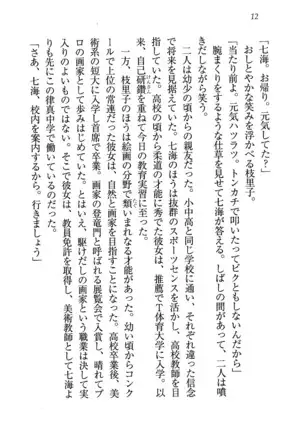 12
「七海。お帰り。元気してた？」
おしとやかな笑みを浮かべる枝里子。
「当たり前よ。元気ハツラツ。トンカチで叩いたってビクともしないんだから」
腕まくりをするような仕草を見せて七海が答える。しばしの間があって、二人は噴
きだしながら笑う。
二人は幼少の頃からの親友だった。小中高と同じ学校に通い、それぞれ違った信念
で将来を見据えていた。七海のほうは抜群のスポーツセンスを活かし、高校教師を目
指すことにした。高校の頃から柔道の才能に秀でた彼女は、推薦でT体育大学に入学。以
来、自己研鑽を重ねて今日の教育実習に至った。
一方、枝里子のほうは絵画の分野で類いまれなる才能があった。幼い頃からコンク
ールで上位の常連だった彼女は、自然と画家を目指すことになった。高校卒業後、美
術系の短大に入学し首席で卒業。画家の登竜門と呼ばれる展覧会で入賞し、晴れてプ
ロの画家として歩みはじめていた。とはいえ、駆けだしの画家という職業は決して実
入りのよいものではない。そこで彼女は、教員免許を取得し、美術教師として七海よ
りも先にこの律真中学で働いているのだった。
「さあ、七海、校内を案内するから。行きましょう」